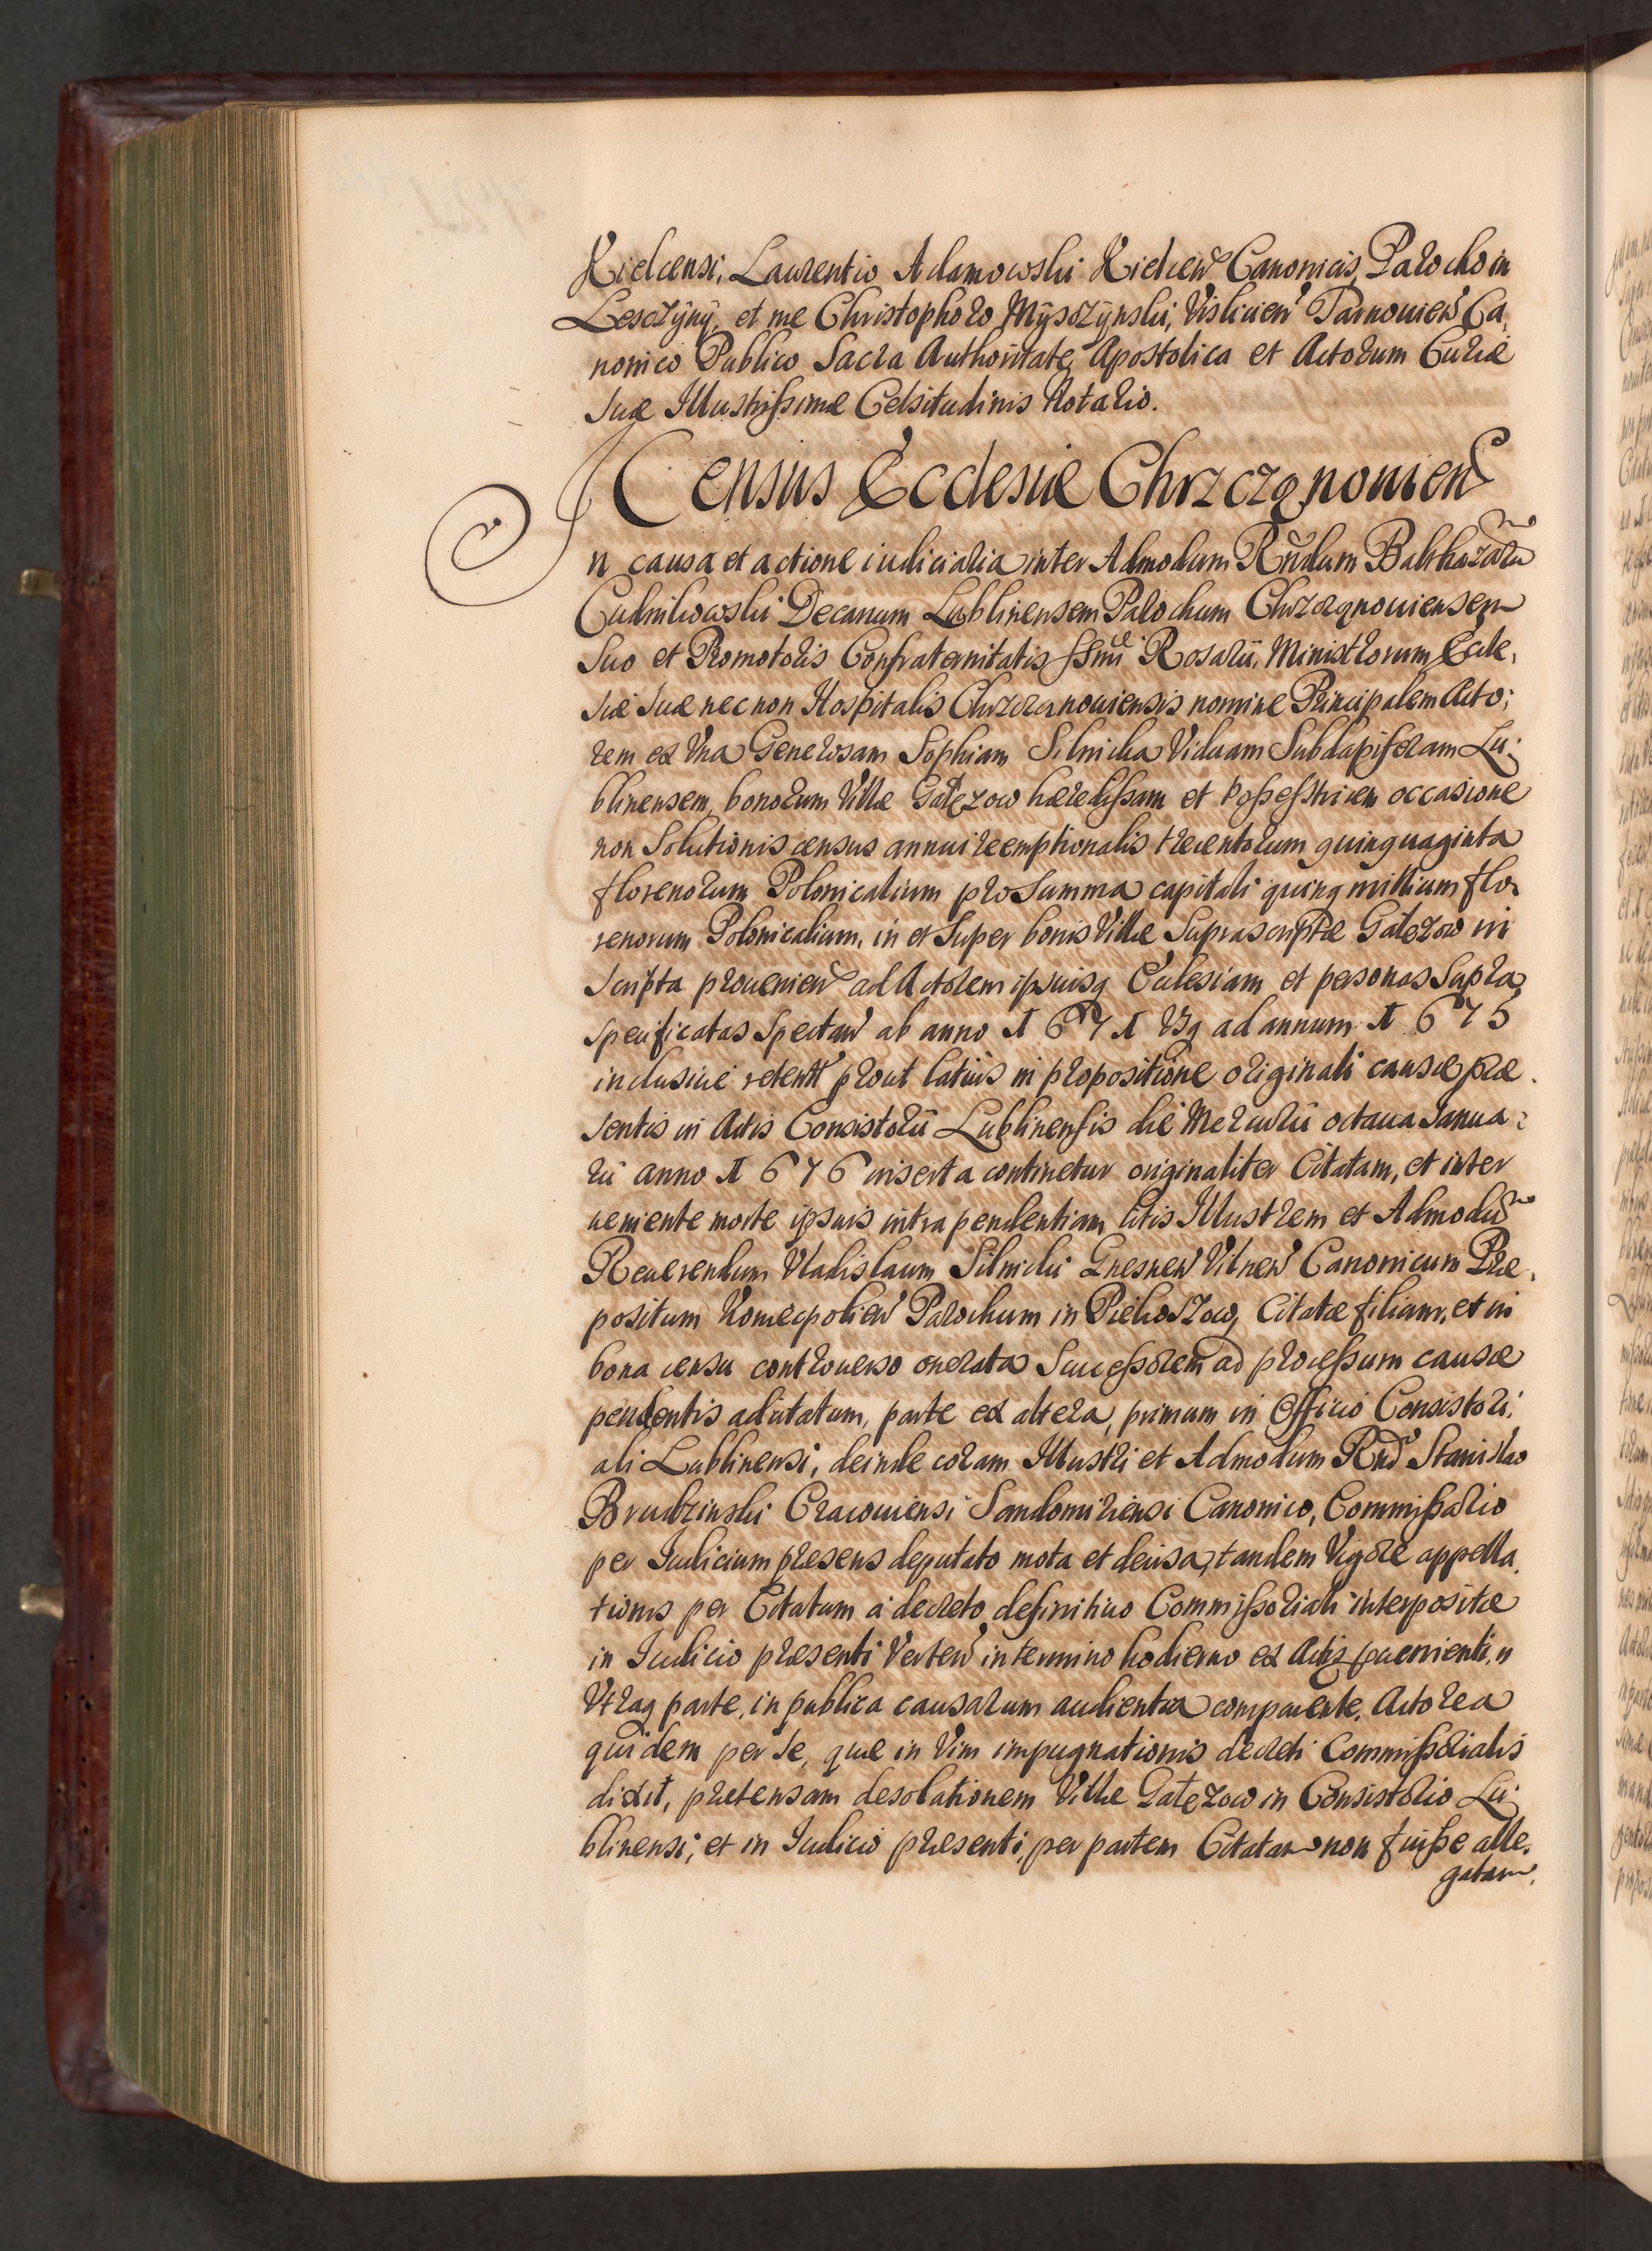 Kielcensi, Laurentio Adamowski Kielcen Canonicis, Parocho in
Lesczÿnÿ, et me Christophoro Mÿsczÿnski, Vislicien Tarnouien Ca,
nonico Publico Sacra Authoritate Apostolica et Actorum Curiæ
Suæ Illustrissimæ Celsitudinis Notario.
Census Ecclesiæ Chrzczonouien
In causa et actione iudiciaria inter Admodum Rndum Balthazaru
Cudnikowski Decanum Lublinensem Parochum Chrzczonouiensem
Suo et Promotoris Confraternitatis SSmi Rosarii, Ministrorum Eccle,
siæ suæ nec non Hospitalis Chrzczonouiensis nomine Principalem Acto;
rem ex Vna Generosam Sophiam Silnicka Viduam Subdapiferam Lu;
blinensem, bonorum Villæ Gałęzow hæredissam et possesstricem occasione
non Solutionis census annui reemptionalis trecentorum quinquaginta
florenorum Polonicalium pro Summa capitali quinq millium flo,
renorum Polonicalium, in et Super bonis Villæ Suprascriptæ Gałęzow in
scripta prouenien ad Actorem ipsuisq Ecclesiam et personas Supra
specificatas Spectan ab anno 1671 Vsq ad annum 1675
inclusiue retent prout latius in propositione originali causæ præ
sentis in Actis Consistorii Lublinensis die Mercurii octaua Janua;
rii anno 1676 inserta continetur originaliter Citatam, et inter
ueniente morte ipsius intra pendentiam litis Illustrem et Admodu
Reuerendum Vladislaum Silnicki Gnesnen Vilnen Canonicum Præ,
positum Komecpolien Parochum in Piekoszow, Citatæ filium, et in
bona censu controuerso onerata Successorem ad processum causæ
pendentis adcitatum, parte ex altera, primum in Officio Consistori,
ali Lublinensi, deinde coram Illustri et Admodum Rnd Stanislao
Brudzinski Cracouiensi Sandomiriensi Canonico, Commissario
per Iudicium præsens deputato mota et decisa, tandem Vigore appella,
tionis per Citatum a decreto definitiuo Commissoriali interpositæ
in Iudicio præsenti Verten in termino hodierno ex Actis
Vtraq parte, in publica causarum audientia comparente. Actorea
quidem per se, quæ in Vim impugnationis decreti Commissorialis
dixit, prætensam desolationem Villæ Gałęzow in Consistorio Lu;
blinensi, et in Iudicio præsenti, per partem Citatam non fuisse alle,
gatam.